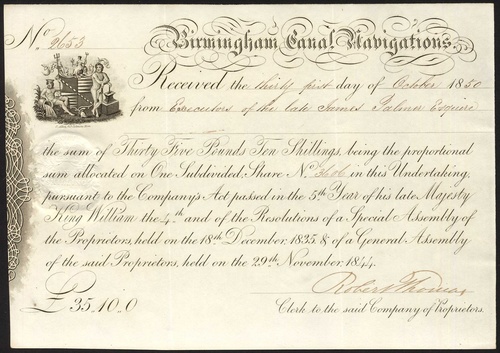 No. 2653 Birmingham Canal Navigations.
Received the thirty first day of October 1850
from Executors of the late James Palmer Esquire
the sum of Thirty Five Pounds Ten Shillings, being the proportional
sum allocated on One Subdivided Share No. 3606 in this Undertaking,
pursuant to the Company's Act passed in the 5th Year of his late Majesty
King William the 4th and of the Resolutions of a Special Assembly of
the Proprietors, held on the 18th December, 1835, & of a General Assembly
of the said Proprietors, held on the 29th November, 1844.
£35.10.0 Robert Thomas
Clerk to the said Company of Proprietors.